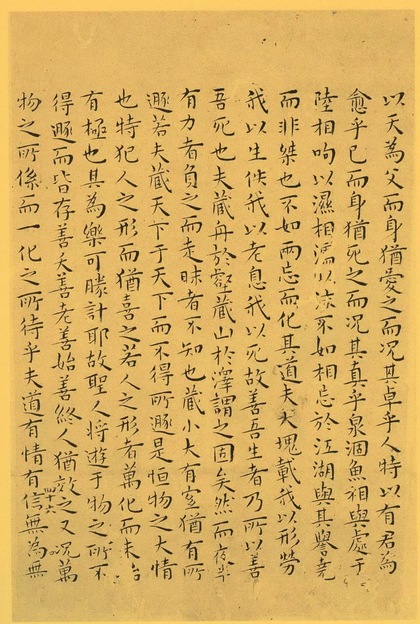 以天為父而身猶愛之而況其卓乎人特以有君為
愈乎已而身猶死之而況其真乎泉涸魚相與處于
陸相呴以濕相濡以沫不如相忘於江湖與其譽堯
而非桀也不如兩忘而化其道夫大塊載我以形勞
我以生佚我以老息我以死故善吾生者乃所以善
吾死也夫藏舟於壑藏山於澤謂之固矣然而夜半
有力者負之而走昧者不知也藏小大有宜猶有所
遯若夫藏天下于天下而不得所遯是恒物之大情
也特犯人之形而猶喜之若人之形者萬化而未始
有極也其為樂可勝計耶故聖人將遊于物之所不
得遯而皆存善夭善老善始善終人猶效之又況萬
物之所係而一化之所待乎夫道有情有信無為無